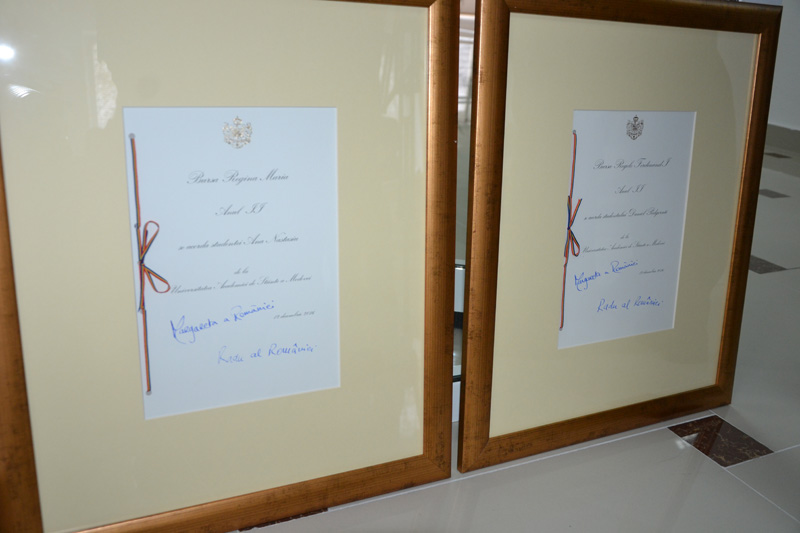 Bursa Regina Maria
Anul II
se acorda studentei Ana Nastasiu
de la
Universitatea Academiei de Științe a Moldovei
12 decembrie 2016
Margareta a României
Radu al României
Bursa Regele Ferdinand I
Anul II
se acorda studentului Daniel
de la
Universitatea Academiei de Științe a Moldovei
12 decembrie 2016
Margareta a României
Radu al României